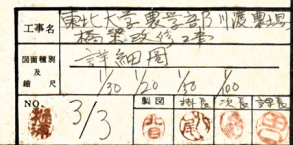 工事名
東北大学農学部川渡農場
橋梁改修工事
図面種別
及
縮尺
詳細図
1/30 1/20 1/50 1/100
NO.
3/3
製図 掛長 次長 課長